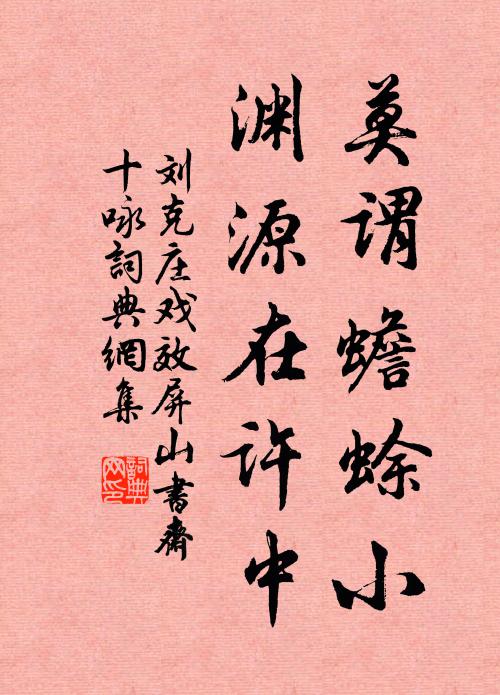 莫谓蟾蜍小
渊源在许中
刘克庄戏效屏山书斋
十咏詞典網集
詞典网印